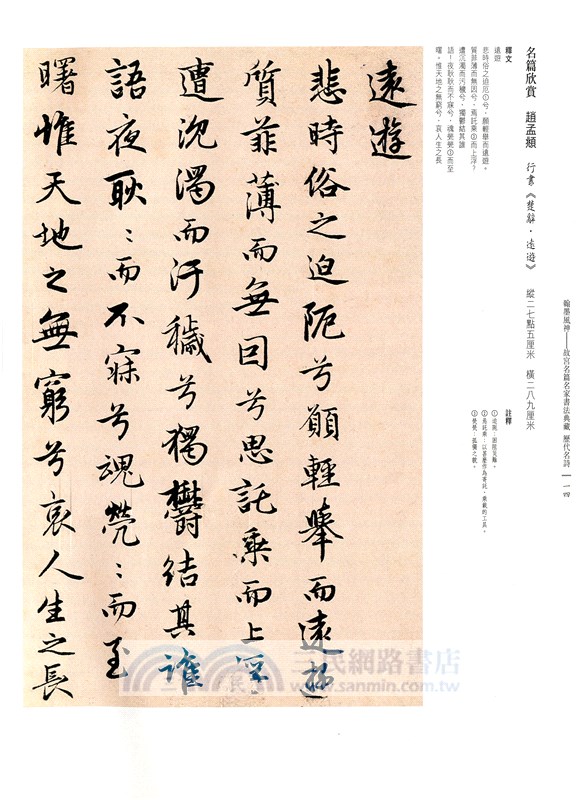 翰墨風神——故宮名篇名家書法典藏 歷代名詩 | 一四
名篇欣賞 趙孟頫 行書《楚辭·遠遊》 縱二七點五厘米 橫二八九厘米
釋文
遠遊
悲時俗之迫阨①兮，願輕舉而遠遊。
質菲薄而無因兮，焉託乘②而上浮？
遭沉濁而污穢兮，獨鬱結其誰
語！夜耿耿而不寐兮，魂煢煢③而至
曙。惟天地之無窮兮，哀人生之長
註釋
①迫阨：困阨災難。
②焉託乘：以甚麼作為寄託、乘載的工具。
③煢煢：孤獨之貌。
遠遊
悲時俗之迫阨兮願輕舉而遠遊
質菲薄而無因兮焉託乘而上浮
遭沉濁而汙穢兮獨鬱結其誰
語夜耿〻而不寐兮魂煢〻而至
曙惟天地之無窮兮哀人生之長
三民網路書店
www.sanmin.com.tw